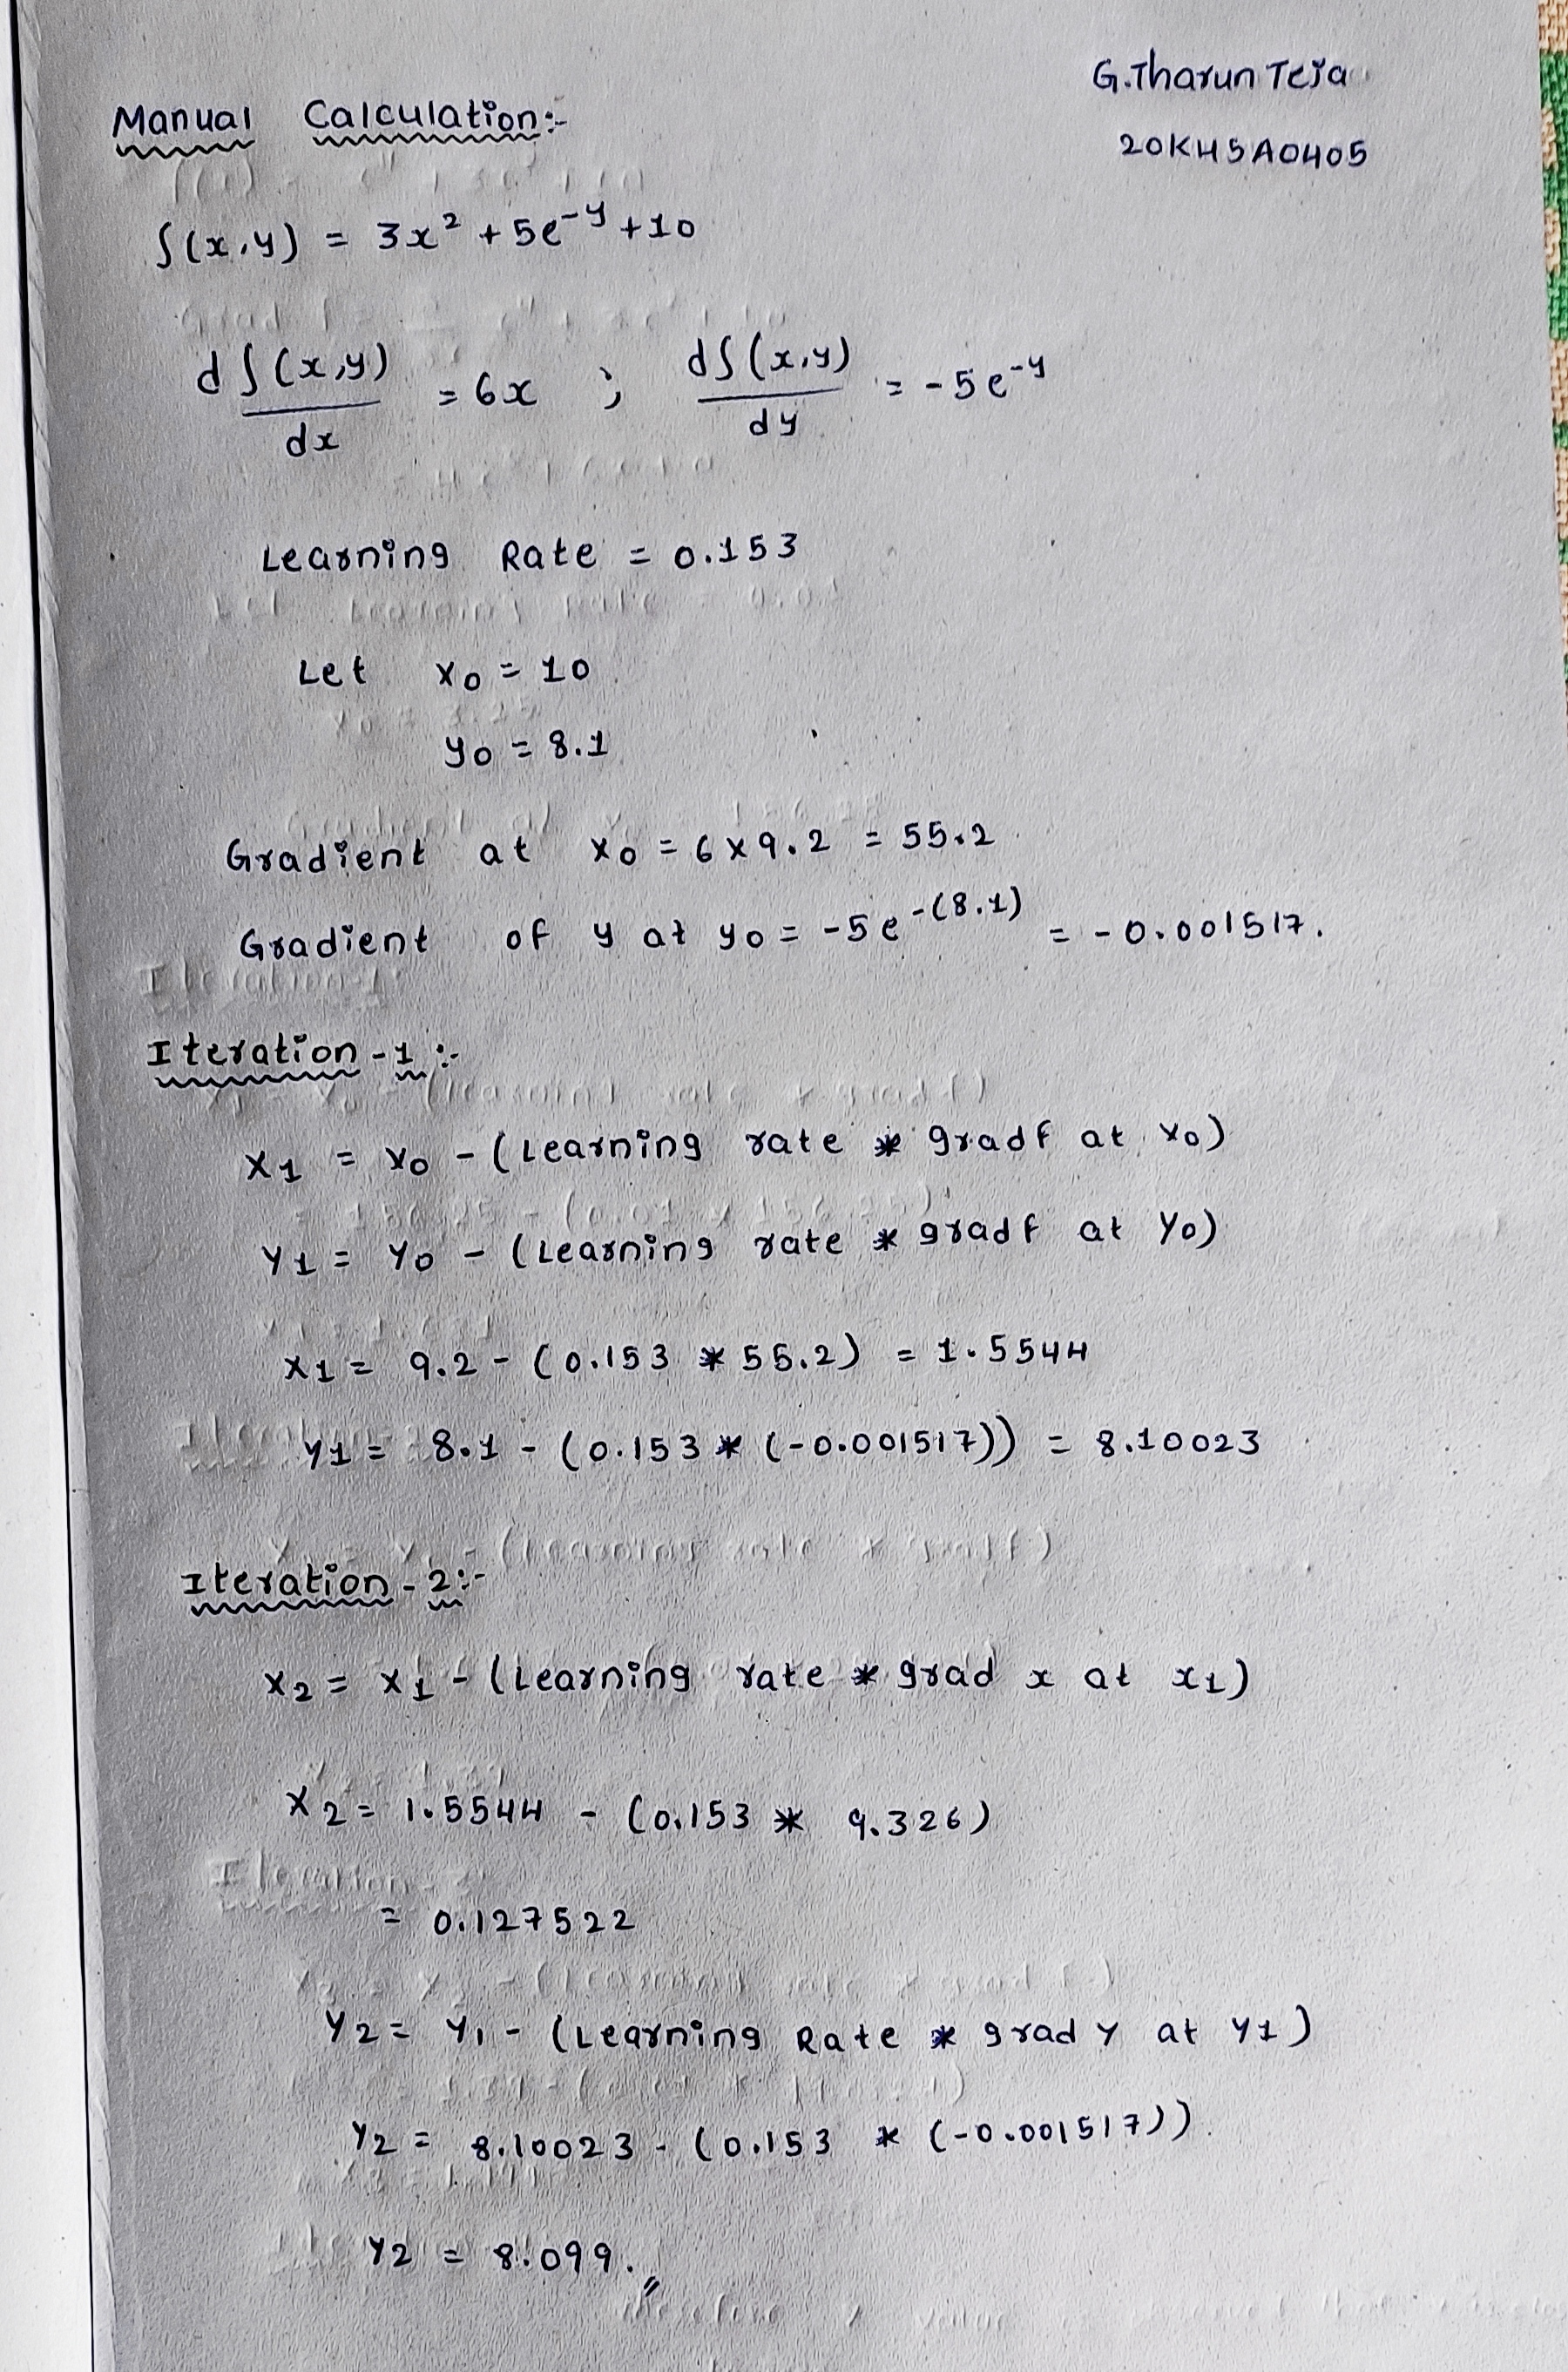 G.Tharun Teja
Manual Calculation:-
20KH5A0405
f(x,y) = 3x² + 5e^-y + 10
d f(x,y) / dx = 6x ; df(x,y) / dy = -5e^-y
Learning Rate = 0.153
Let x0 = 10
y0 = 8.1
Gradient at x0 = 6 x 9.2 = 55.2
Gradient of y at y0 = -5e^-(8.1) = -0.001517.
Iteration-1:-
X1 = X0 - (Learning rate * gradf at X0)
Y1 = Y0 - (Learning rate * gradf at Y0)
X1 = 9.2 - (0.153 * 55.2) = 1.5544
Y1 = 8.1 - (0.153 * (-0.001517)) = 8.10023
Iteration-2:-
X2 = X1 - (Learning rate * grad x at x1)
X2 = 1.5544 - (0.153 * 9.326)
= 0.127522
Y2 = Y1 - (Learning Rate * grad y at y1)
Y2 = 8.10023 - (0.153 * (-0.001517)).
Y2 = 8.099.